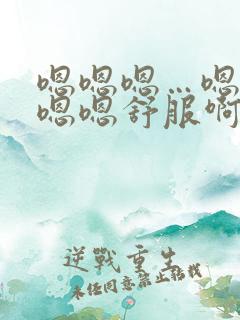 嗯嗯嗯…嗯
嗯嗯舒服啊
逆戰重生
未经同意禁止转载